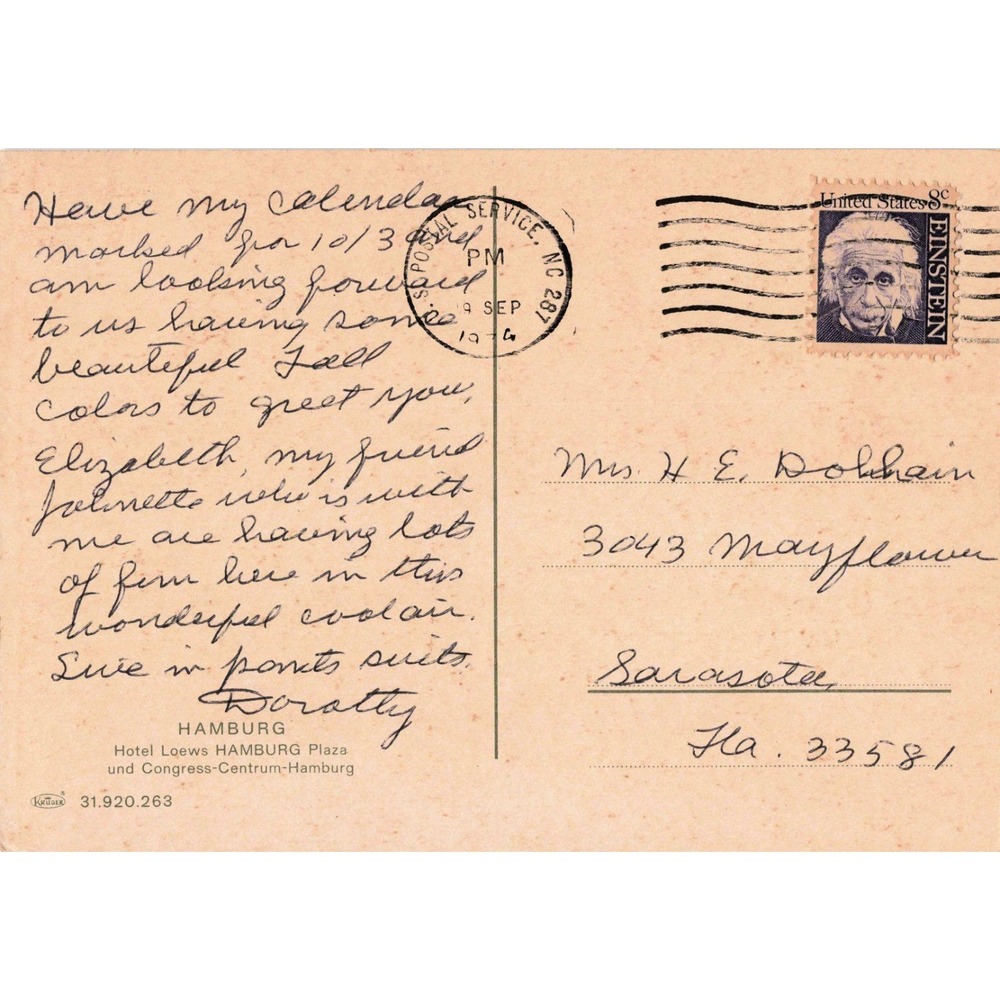 Have my Calendar
marked for 10/3 and
am looking forward
to us having some
beautiful Fall
colors to greet you,
Elizabeth, my friend
who is with
me are having lots
of fun here in this
wonderful cool air.
Live in pants suits.
Dorothy
HAMBURG
Hotel Loews HAMBURG Plaza
und Congress-Centrum-Hamburg
KRÜGER 31.920.263
U.S. POSTAL SERVICE, NC 287
PM
9 SEP
1974
United States 8c
EINSTEIN
Mrs H E.
3043 Mayflower
Sarasota,
Fla. 33581